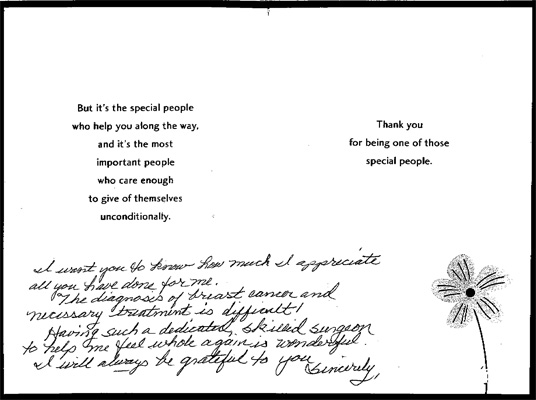 But it's the special people
who help you along the way,
and it's the most
important people
who care enough
to give of themselves
unconditionally.
Thank you
for being one of those
special people.
I want you to know how much I appreciate
all you have done for me.
The diagnosis of breast cancer and
necessary treatment is difficult!
Having such a dedicated, skilled surgeon
to help me feel whole again is wonderful.
I will always be grateful to you
Sincerely,